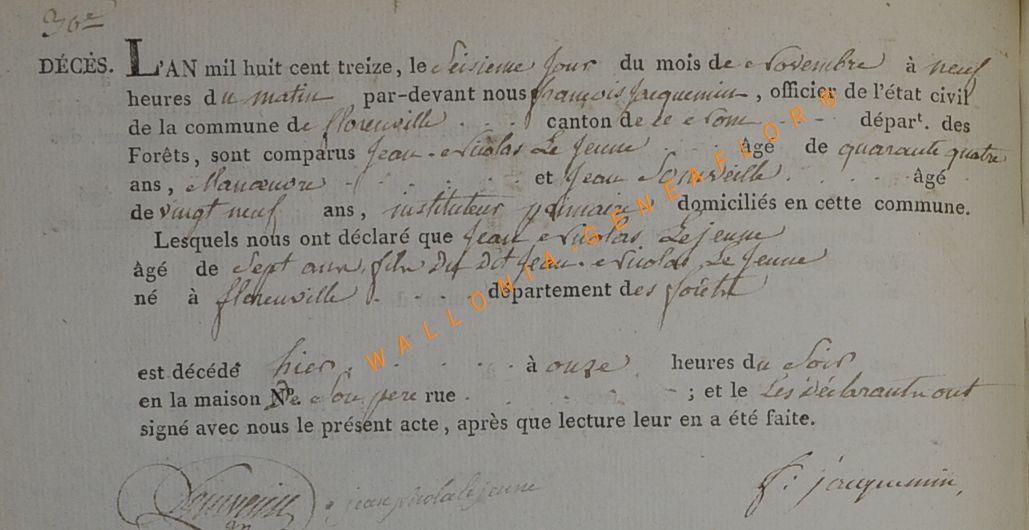 30e
DÉCÈS. L'AN mil huit cent treize, le Seisieme jour du mois de Novembre à neuf
heures du matin par-devant nous françois jacquemin, officier de l'état civil
de la commune de florenville canton de ce Nom départ. des
Forêts, sont comparus Jean Nicolas Le Jeune âgé de quarante quatre
ans, Manœuvre et Jean âgé
de vingt neuf ans, instituteur primaire domiciliés en cette commune.
Lesquels nous ont déclaré que Jean Nicolas Lejeune
âgé de Sept ans, fils Du Dit Jean Nicolas Le Jeune
né à florenville département des forêts
est décédé hier, à onze heures du Soir
en la maison De Son pere rue ; et le Les Déclarants ont
signé avec nous le présent acte, après que lecture leur en a été faite.
jean nicola lejeune f: jacquemin,
WALLONIA-GENEAFLOR©